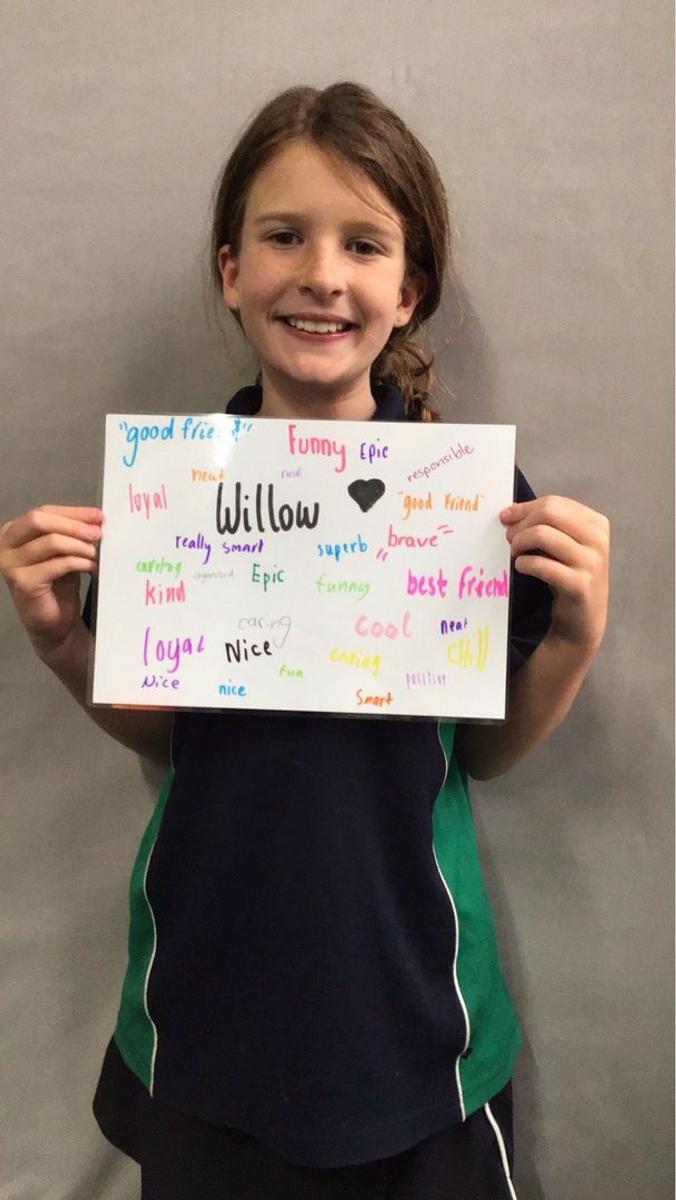 "good friend"
Funny
Epic
responsible
neat
neat
loyal
Willow
"good Friend"
really smart
superb
"brave"
caring
organised
Epic
kind
funny
best friend
caring
cool
neat
loyal
Nice
caring
CHill
fun
Nice
nice
positive
Smart